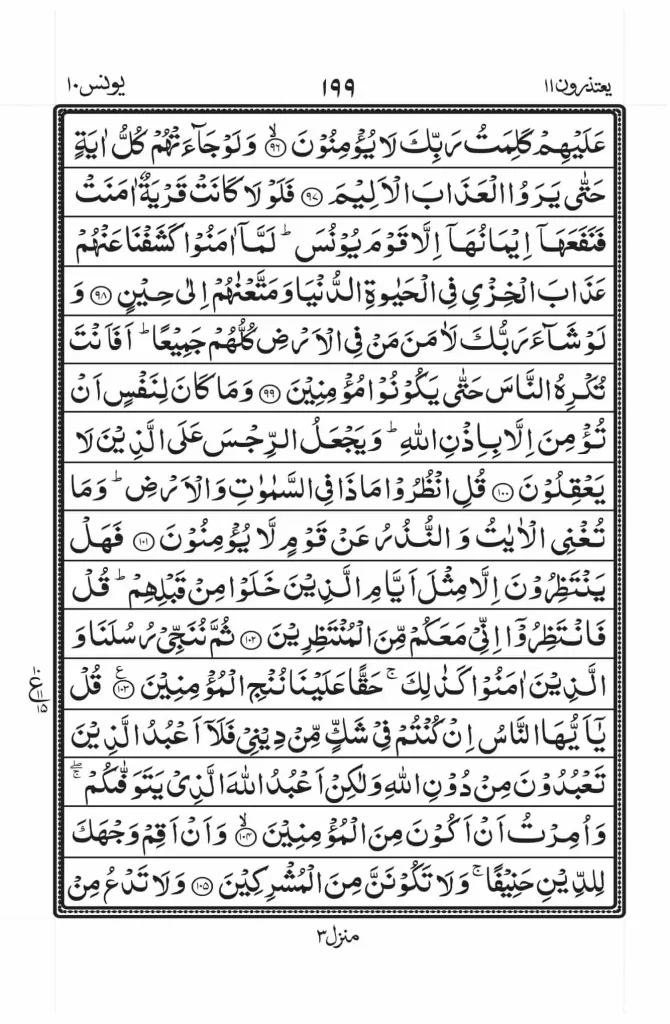 یعتذرون ۱۱
۱۹۹
یونس ۱۰
عَلَیْهِمْ كَلِمَتُ رَبِّكَ لَا یُؤْمِنُوْنَ ﴿۹۶﴾ۙ وَ لَوْ جَآءَتْهُمْ كُلُّ اٰیَةٍ
حَتّٰی یَرَوُا الْعَذَابَ الْاَلِیْمَ ﴿۹۷﴾ فَلَوْ لَا كَانَتْ قَرْیَةٌ اٰمَنَتْ
فَنَفَعَهَاۤ اِیْمَانُهَاۤ اِلَّا قَوْمَ یُوْنُسَ ؕ لَمَّاۤ اٰمَنُوْا كَشَفْنَا عَنْهُمْ
عَذَابَ الْخِزْیِ فِی الْحَیٰوةِ الدُّنْیَا وَ مَتَّعْنٰهُمْ اِلٰی حِیْنٍ ﴿۹۸﴾ وَ
لَوْ شَآءَ رَبُّكَ لَاٰمَنَ مَنْ فِی الْاَرْضِ كُلُّهُمْ جَمِیْعًا ؕ اَفَاَنْتَ
تُكْرِهُ النَّاسَ حَتّٰی یَكُوْنُوْا مُؤْمِنِیْنَ ﴿۹۹﴾ وَ مَا كَانَ لِنَفْسٍ اَنْ
تُؤْمِنَ اِلَّا بِاِذْنِ اللّٰهِ ؕ وَ یَجْعَلُ الرِّجْسَ عَلَی الَّذِیْنَ لَا
یَعْقِلُوْنَ ﴿۱۰۰﴾ قُلِ انْظُرُوْا مَا ذَا فِی السَّمٰوٰتِ وَ الْاَرْضِ ؕ وَ مَا
تُغْنِی الْاٰیٰتُ وَ النُّذُرُ عَنْ قَوْمٍ لَّا یُؤْمِنُوْنَ ﴿۱۰۱﴾ فَهَلْ
یَنْتَظِرُوْنَ اِلَّا مِثْلَ اَیَّامِ الَّذِیْنَ خَلَوْا مِنْ قَبْلِهِمْ ؕ قُلْ
فَانْتَظِرُوْۤا اِنِّیْ مَعَكُمْ مِّنَ الْمُنْتَظِرِیْنَ ﴿۱۰۲﴾ ثُمَّ نُنَجِّیْ رُسُلَنَا وَ
الَّذِیْنَ اٰمَنُوْا كَذٰلِكَ ۚ حَقًّا عَلَیْنَا نُنْجِ الْمُؤْمِنِیْنَ ﴿۱۰۳﴾ع قُلْ
یٰۤاَیُّهَا النَّاسُ اِنْ كُنْتُمْ فِیْ شَكٍّ مِّنْ دِیْنِیْ فَلَاۤ اَعْبُدُ الَّذِیْنَ
تَعْبُدُوْنَ مِنْ دُوْنِ اللّٰهِ وَ لٰكِنْ اَعْبُدُ اللّٰهَ الَّذِیْ یَتَوَفّٰىكُمْ ۖۚ
وَ اُمِرْتُ اَنْ اَكُوْنَ مِنَ الْمُؤْمِنِیْنَ ﴿۱۰۴﴾ۙ وَ اَنْ اَقِمْ وَجْهَكَ
لِلدِّیْنِ حَنِیْفًا ۚ وَ لَا تَكُوْنَنَّ مِنَ الْمُشْرِكِیْنَ ﴿۱۰۵﴾ وَ لَا تَدْعُ مِنْ
۱۰
ع
۱۱
۱۵
منزل ۳